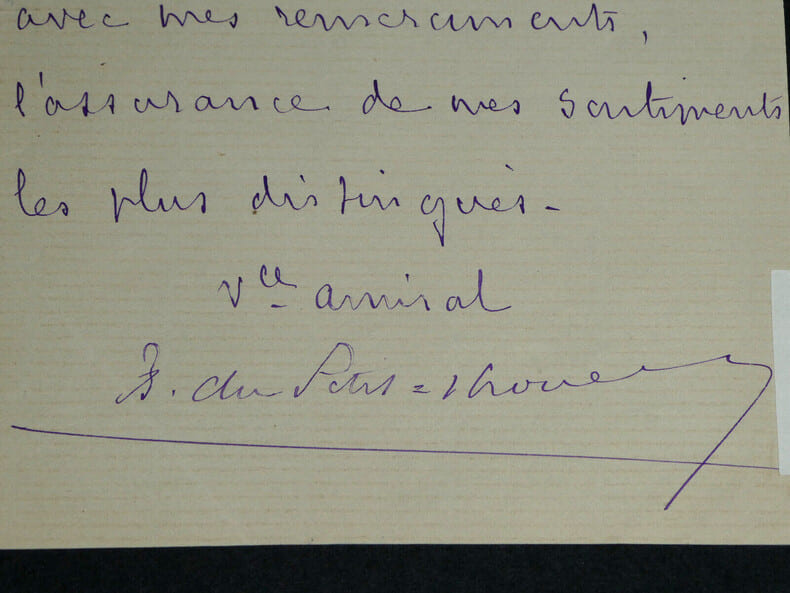 avec mes remerciments,
l'assurance de mes sentiments
les plus distingués -
Vce amiral
B. du Petit=Thouars